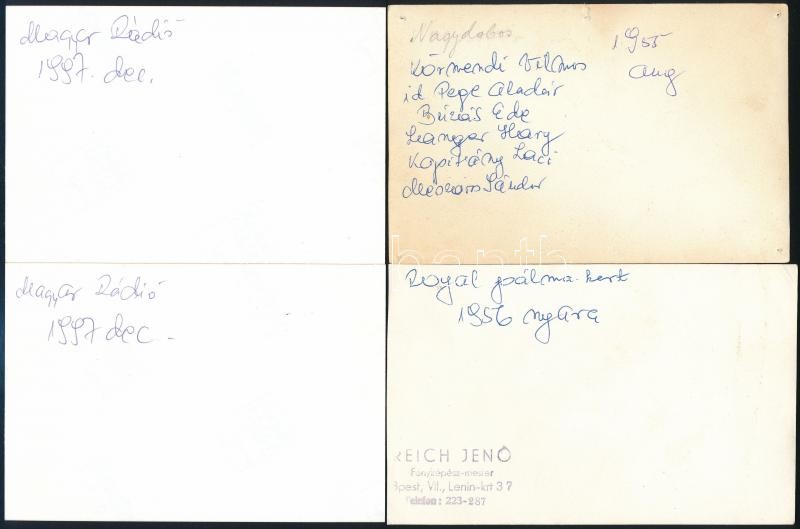 Magyar Rádió
1997. dec.
Nagydobos
1955
aug
Körmendi Vilmos
id Pege Aladár
Búzás Ede
Hary
Kapitány Laci
Mészáros Sándor
Magyar Rádió
1997 dec.
Royal pálma-kert
1956 nyara
REICH JENŐ
Fényképész-mester
Bpest, VII., Lenin-krt 37
Telefon: 223-287